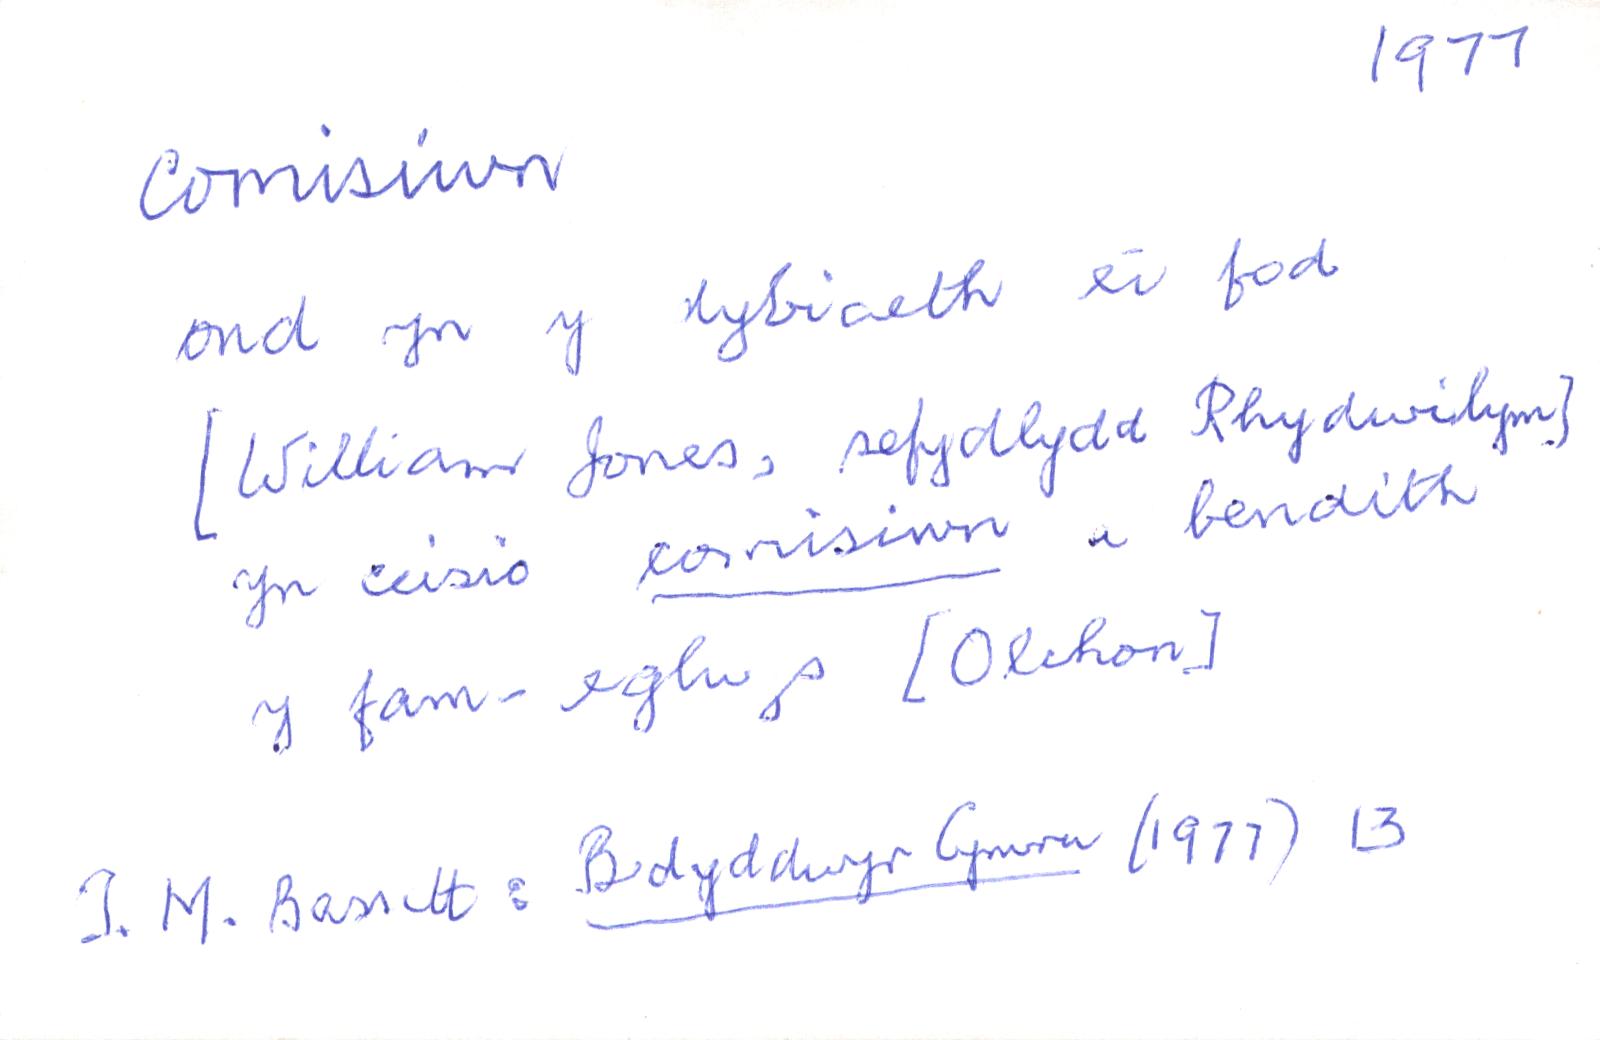 1977
Comisiwn
ond yn y dybiaeth ei fod
[William Jones, sefydlydd Rhydwilym]
yn ceisio comisiwn a bendith
y fam-eglwys [Olchon]
T. M. Bassett: Bedyddwyr Cymru (1977) 13